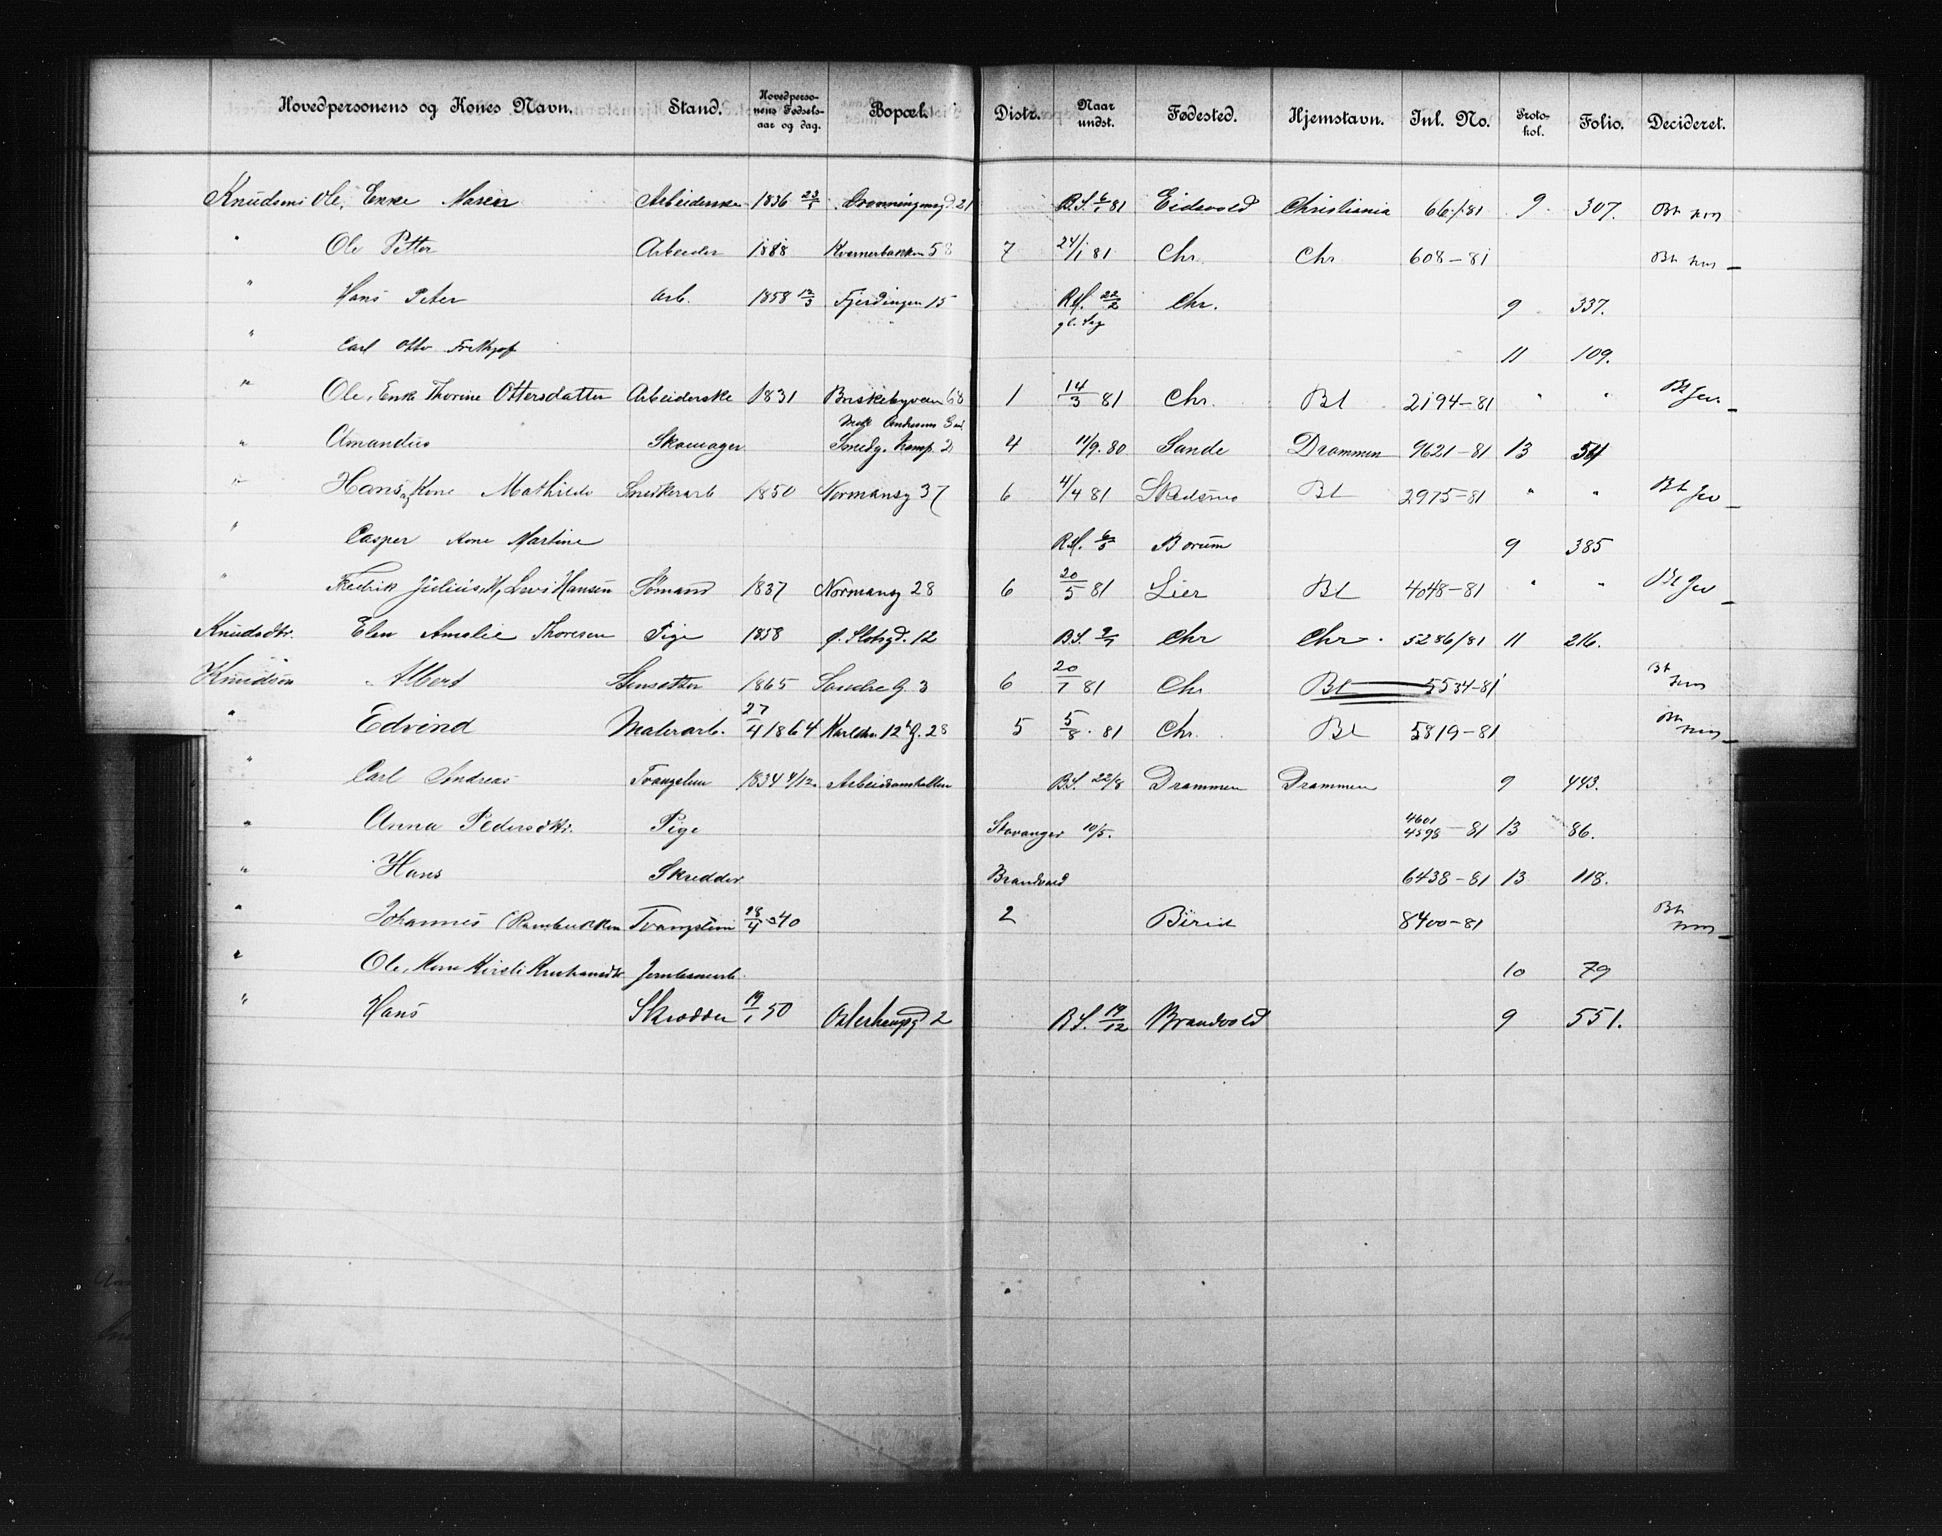 Hovedpersonens og Kones Navn. Stand. Hovedpersonens Fødselsaar og dag. Bopæl. Distr. Naar undst. Fødested. Hjemstavn. Inl. No. Protokol. Folio. Decideret.
Knudsens Ole, Enke Maren Arbeiderske 1836 23/1 21 B.S. 6/1 81 Eidsvold Christiania 66/81 9. 307. Bt
" Ole Petter Arbeider 1888 Kvernerbakken 53 7 24/1 81 Chr. Chr 608-81 Bt
" Hans Peter Arb. 1858 12/3 Fjerdingen 15 22/2 Chr. 9 337.
" Carl Otto Frithjof 11 109.
" Ole, Enke Thorine Ottersdatter Arbeiderske 1831 Briskebyveien 68 1 14/3 81 Chr. Bt 2194-81 " " Bt
" Amandus Skomager Smedg. Kamp. 2 4 11/9. 80 Sande Drammen 9621-81 13 54
" Hans, Kone Mathilde Snedkerarb 1850 Normansg 37 6 4/4 81 Skedsmo Bt 2975-81 " " Bt
" Casper Kone Martine 6/5 Borum 9 385
" Fredrik Julius Hansen Sømand 1837 Normansg 28 6 20/5 81 Lier Bt 4048-81 " " Bt
Knudsdtr. Elen Amalie Thoresen Pige 1858 Ø. Slotsgd. 12 B.S. Chr Chr. 5286/81 11 216.
Knudsen Albert 1865 Søndre G. 3 6 20/7 81 Chr Bt 5534-81 Bt
" Edvind Malerarb. 27/4 1864 28 5 5/8. 81 Chr. Bt 5819-81 Bt
" Carl Andreas Tvangslem 1834 4/12. Arbeidsanstalten B.S. 22/8 Drammen Drammen 9 443.
" Anna Pedersdtr. Pige Stavanger 10/5. 4601 4598-81 13 86.
" Hans Skredder Brandvold 6438-81 13 118.
" Johannes (Rambukken Tvangslem 28/4 40 2 Birid 8400-81 Bt
" Ole, Kone Kirsti 10 79
" Hans Skrædder 19/1 50 2 B.S. 19/12 Brandvold 9 551.